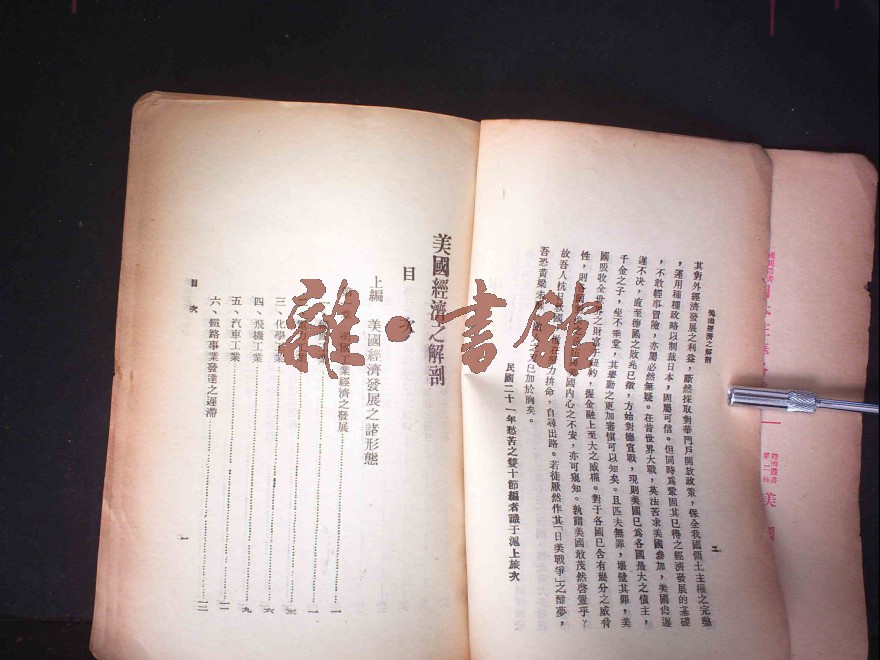 美國經濟之解剖
二
其對外經濟發展之利益，斷然採取對華門戶開放政策，保全我國領土主權之完整
，運用種種政略以制裁日本，固屬可信。但同時為鞏固其已得之經濟發展的基礎
，不敢輕事冒險，亦屬必然無疑。在昔世界大戰，英法苦求美國參加，美國尚遲
遲不決，直至德國之敗兆已徵，方始對德宣戰，現則美國已為各國最大之債主，
千金之子，坐不垂堂，其舉動之更加審慎可以知矣。且匹夫無罪，懷璧其罪，美
國吸收全世界之財富于紐約，握金融上至大之威權。對于各國已含有幾分之威脅
性，則各國
國內心之不安，亦可窺知。孰謂美國敢茂然啓釁乎？
故吾人抗日
力拚命，自尋出路。若徒厭然作其「日美戰爭」之酣夢，
吾恐黃粱未
已加於胸矣。
民國二十一年愁苦之雙十節編者識于滬上旅次
美國經濟之解剖
目次
上編 美國經濟發展之諸形態
國工業經濟之發展 一
一
三、化學工業 三
四、飛機工業 六
五、汽車工業 九
六、鐵路事業發達之遲滯 一二
目次
一
雜·書館
美